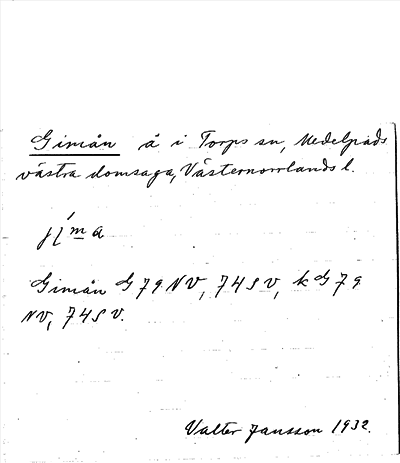 Gimån å i Torps sn, Medelpads
västra domsaga, Västernorrlands l.
Gimån G 79 NV, 74 SV, k G 79
NV, 74 SV.
Valter Jansson 1932.